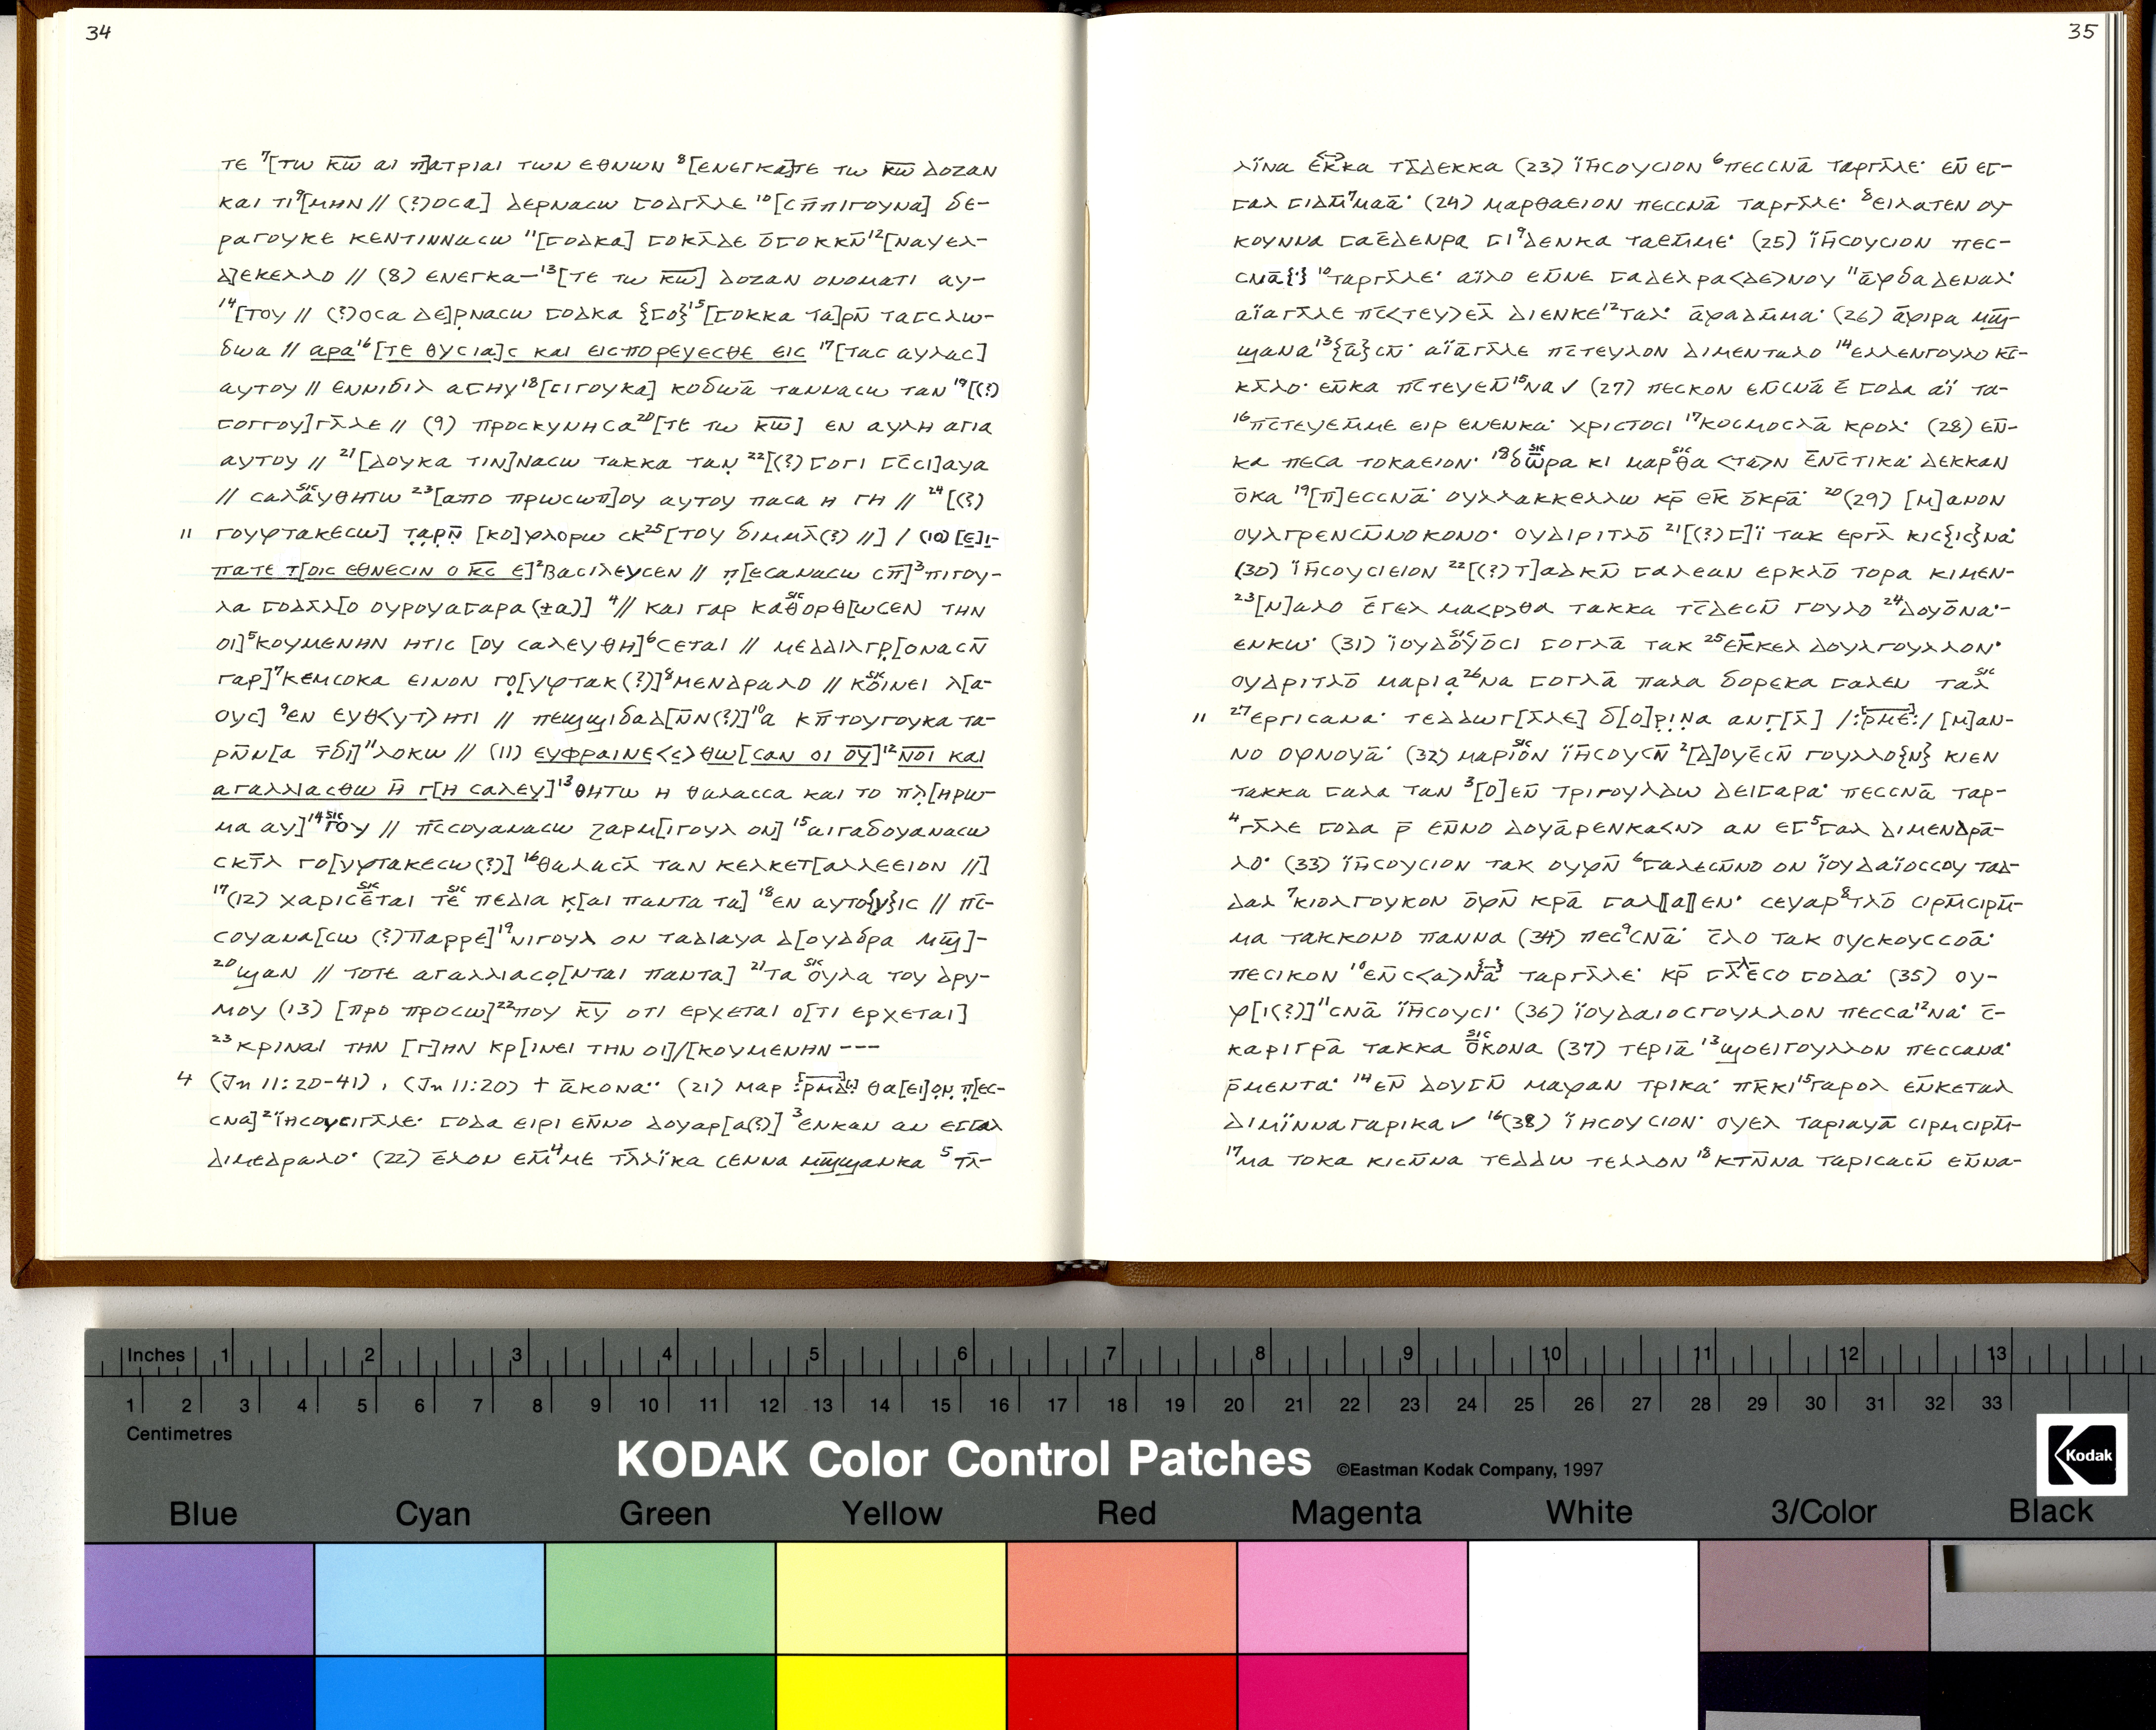 34
τε ⁷[τω κ̅ω̅ αι π]ατριαι των εθνων ⁸[ενεγκα]τε τω κ̅ω̅ δοζαν
και τι⁹[μην // (?)οσα] δερνασω ⲅοδγῑλε ¹⁰[ⲥⲡ̄ⲡιγουνα] δε-
ραγουκε κεντιννασω ¹¹[ⲅοδκα] ⲅοκῑδε ο̄ⲅοκκν̄¹²[ναυελ-
δ]εκελλο // (8) ενεγκα–¹³[τε τω κ̅ω̅] δοζαν ονοματι αυ-
¹⁴[του // (?)οσα δε]ρνασω ⲅοδκα {ⲅο}¹⁵[ⲅοκκα τα]ρν̄ ταⲅσλω-
δωα // αρα¹⁶[τε θυσια]ς και εισπορευεσθε εις ¹⁷[τας αυλας]
αυτου // εννιδιλ αⲅηυ¹⁸[ⲥιγουκα] κοδωᾱ ταννασω ταν ¹⁹[(?)
ⲅοργου]γῑλε // (9) προσκυνησα²⁰[τε τω κ̅ω̅] εν αυλη αγια
αυτου // ²¹[δουκα τιν]νασω τακκα ταν ²²[(?) ⲅοⲅι ⲅⲥ̄ⲥι]αυα
// σαλαυθητω ²³[απο πρωσωπ]ου αυτου πασα η γη // ²⁴[(?)
11 γουφτακεσω] ταρν̄ [κο]φλορω σκ²⁵[του διμμλ̄(?) //] / (10) [ε]ι-
πατε τ[οις εθνεσιν ο κ̅ς̅ ε]²βασιλευσεν // π[εσανασω σπ̄]³πιγου-
λα ⲅοδλ̄λ[ο ουρουαγαρα (±α)] ⁴// και γαρ καθορθ[ωσεν την
οι]⁵κουμενην ητις [ου σαλευθη]⁶σεται // μεδδιλγρ[ονασν̄
γαρ]⁷κεμσοκα εινον γο[υφτακ(?)]⁸μενδραλο // κοινει λ[α-
ους] ⁹εν ευθ<υτ>ητι // πεϣϣιδαδ[ν̄ν(?)]¹⁰α κπ̄τουγουκα τα-
ρν̄ν[α τ̄δι]¹¹λοκω // (11) ευφραινε<ς>θω[σαν οι ο̅υ̅]¹²ν̅ο̅ι̅ και
αγαλλιασθω η̄ γ[η σαλευ]¹³θητω η θαλασσα και το πλ[ηρω-
μα αυ]¹⁴του // πῑσσουανασω ζαρμ[ιγουλ ον] ¹⁵αιγαδουανασω
σκτ̄λ γο[υφτακεσω(?)] ¹⁶θαλασῑ ταν κελκετ[αλλεειον //]
¹⁷(12) χαρισεται τε πεδια κ[αι παντα τα] ¹⁸εν αυτο{υ}ις // πῑσ-
σουανα[σω (?)παρρε]¹⁹νιγουλ ον ταδιαυα δ[ουδδρα μϣ̄]-
²⁰ϣαν // τοτε αγαλλιασο[νται παντα] ²¹τα ουλα του δρυ-
μου (13) [προ προσω]²²που κ̅υ̅ οτι ερχεται ο[τι ερχεται]
²³κριναι την [γ]ην κρ[ινει την οι]/[κουμενην ---
4 (Jn 11:20-41), (Jn 11:20) + ᾱκονα·· (21) μαρ :[ρ̅μ̅δ̅:] θα[ει]ον π[εσ-
σνα] ²ῑησουσιγῑλε· ⲅοδα ειρι εν̄νο δουαρ[α(?)] ³ενκαν αν εⲅⲅαλ
διμεδραλο· (22) ε̄λον ελ̄⁴με τλ̄λϊκα σεννα μϣ̄ϣανκα ⁵τλ̄-
35
λῑνα ε̄κκα τῑδεκκα (23) ϊη̄σουσιον ⁶πεσσνᾱ ταργῑλε· εν̄ εⲅ-
ⲅαλ ⲅιδμ̄⁷μαᾱ· (24) μαρθαειον πεσσνᾱ ταργῑλε· ⁸ειλατεν ου
κουννα ⲅαε̄δενρα ⲅι⁹δενκα ταεμ̄με· (25) ϊη̄σουσιον πεσ-
σνᾱ{·} ¹⁰ταργῑλε· αϊλο εν̄νε ⲅαδελρα<δε>νου ¹¹ᾱφδαδεναλ·
αϊαγῑλε πῑσ<τευ>ελ̄ διενκε¹²ταλ· ᾱραδμ̄μα· (26) ᾱφιρα μϣ̄-
ϣανα¹³{ᾱ}σν̄· αϊᾱγῑλε πῑστευλον διμενταλο ¹⁴ελλενγουλο κῑσ-
κλ̄λο· εν̄κα πῑστευεν̄¹⁵να✓ (27) πεσκον εν̄σνᾱ ε̄ ⲅοδα αϊ τα-
¹⁶πῑστευεμ̄με ειρ ενενκα· χριστοσι ¹⁷κοσμοσλᾱ κρολ· (28) εν̄-
κα πεσα τοκαειον· ¹⁸δωρα κι μαρθα <τα>ν ε̄νσ̄τικα· δεκκαν
ο̄κα ¹⁹[π]εσσνᾱ· ουλλακκελλω κρ̄ εκ̄ ο̄κρᾱ· ²⁰(29) [μ]ανον
ουλγρενσν̄νοκονο· ουδιριτλο̄ ²¹[(?)ⲅ]ϊ τακ εργλ̄ κισ{ισ}να·
(30) ϊη̄σουσιειον ²²[(?)τ]αδ κν̄ ⲅαλεαν ερκλο̄ τορα κιμεν-
²³[ν]αλο ε̄γελ μα<ρ>θα τακκα τσ̄δεσν̄ γουλο ²⁴δουο̄να·-
ενκω· (31) ϊουδουο̄σι ⲅογλᾱ τακ ²⁵εκ̄κελ δουλγουλλον·
ουδριτλο̄ μαρια²⁶να ⲅογλᾱ παλα δορεκα ⲅαλεν ταλ
11 ²⁷εργισανα· τεδδωγ[ῑλε] δ[ο]ρινα ανγ[λ̄] /:[ρ̅μ̅ε̅:/ [μ]αν-
νο ουνουᾱ· (32) μαριον ϊη̄σουσν̄ ²[δ]ουε̄σν̄ γουλλο{ν} κιεν
τακκα ⲅαλα ταν ³[ο]εν̄ τριγουλδω δειⲅαρα· πεσσνᾱ ταρ-
⁴γῑλε ⲅοδα ρ̄ εν̄νο δουᾱρενκα<ν> αν εⲅ⁵ⲅαλ διμενδρᾱ-
λο· (33) ϊη̄σουσιον τακ ουφν̄ ⁶ⲅαλεσν̄νο ον ϊουδαϊοσσου ταδ-
δαλ ⁷κιολγουκον ο̄φν̄ κρᾱ ⲅαλ⟦α⟧εν· σευαρ⁸τλο̄ σιρμ̄σιρμ̄-
μα τακκονο παννα (34) πεσ⁹σνᾱ· σ̄λο τακ ουσκουσσοᾱ·
πεσικον ¹⁰εν̄σ<α>νᾱ ταργῑλε· κρ̄ ⲅλ̄εσο ⲅοδα· (35) ου-
φ[ι(?)]¹¹σνᾱ ϊη̄σουσι· (36) ϊουδαιοσγουλλον πεσσα¹²να· σ̄-
καριγρᾱ τακκα ο̄κονα (37) τεριᾱ ¹³ϣοειγουλλον πεσσανα·
ρ̄μεντα· ¹⁴εν̄ δουⲅν̄ μαφαν τρικα· πκ̄κι¹⁵γαρολ εν̄κεταλ
διμϊνναγαρικα✓ ¹⁶(38) ϊησουσιον· ουελ ταριαυᾱ σιρμσιρμ̄-
¹⁷μα τοκα κισν̄να τεδδω τελλον ¹⁸κτν̄να ταρισασν̄ εν̄να-
Inches 1 2 3 4 5 6 7 8 9 10 11 12 13
1 2 3 4 5 6 7 8 9 10 11 12 13 14 15 16 17 18 19 20 21 22 23 24 25 26 27 28 29 30 31 32 33
Centimetres
KODAK Color Control Patches ©Eastman Kodak Company, 1997
Kodak
Blue Cyan Green Yellow Red Magenta White 3/Color Black